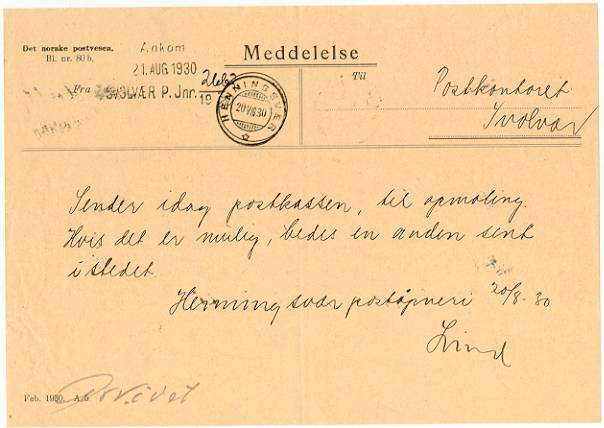 Det norske postvesen.
Bl. nr. 80 b.
Ankom
21. AUG 1930
SVOLVÆR P. Jnr. 2662/19
Meddelelse
Fra
Til
HENNINGSVÆR
20 VIII 30
Postkontoret
Svolvær
Sender idag postkassen, til opmaling.
Hvis det er mulig, bedes en anden sent
istedet.
Henningsvær poståpneri 20/8-30
Lind
Feb. 1930. A.5